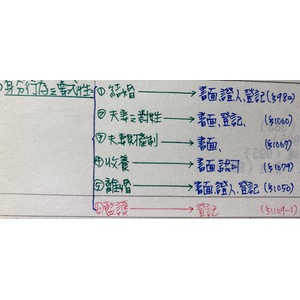 身分行為之要式性
① 結婚 → 書面、證人、登記 (§982)
② 夫妻之姓 → 書面、登記、 (§1000)
③ 夫妻財產制 → 書面、 (§1007)
④ 收養 → 書面、認可 (§1079)
⑤ 離婚 → 書面、證人、登記 (§1050)
⑥ 監護 → 登記 (§1109-1)